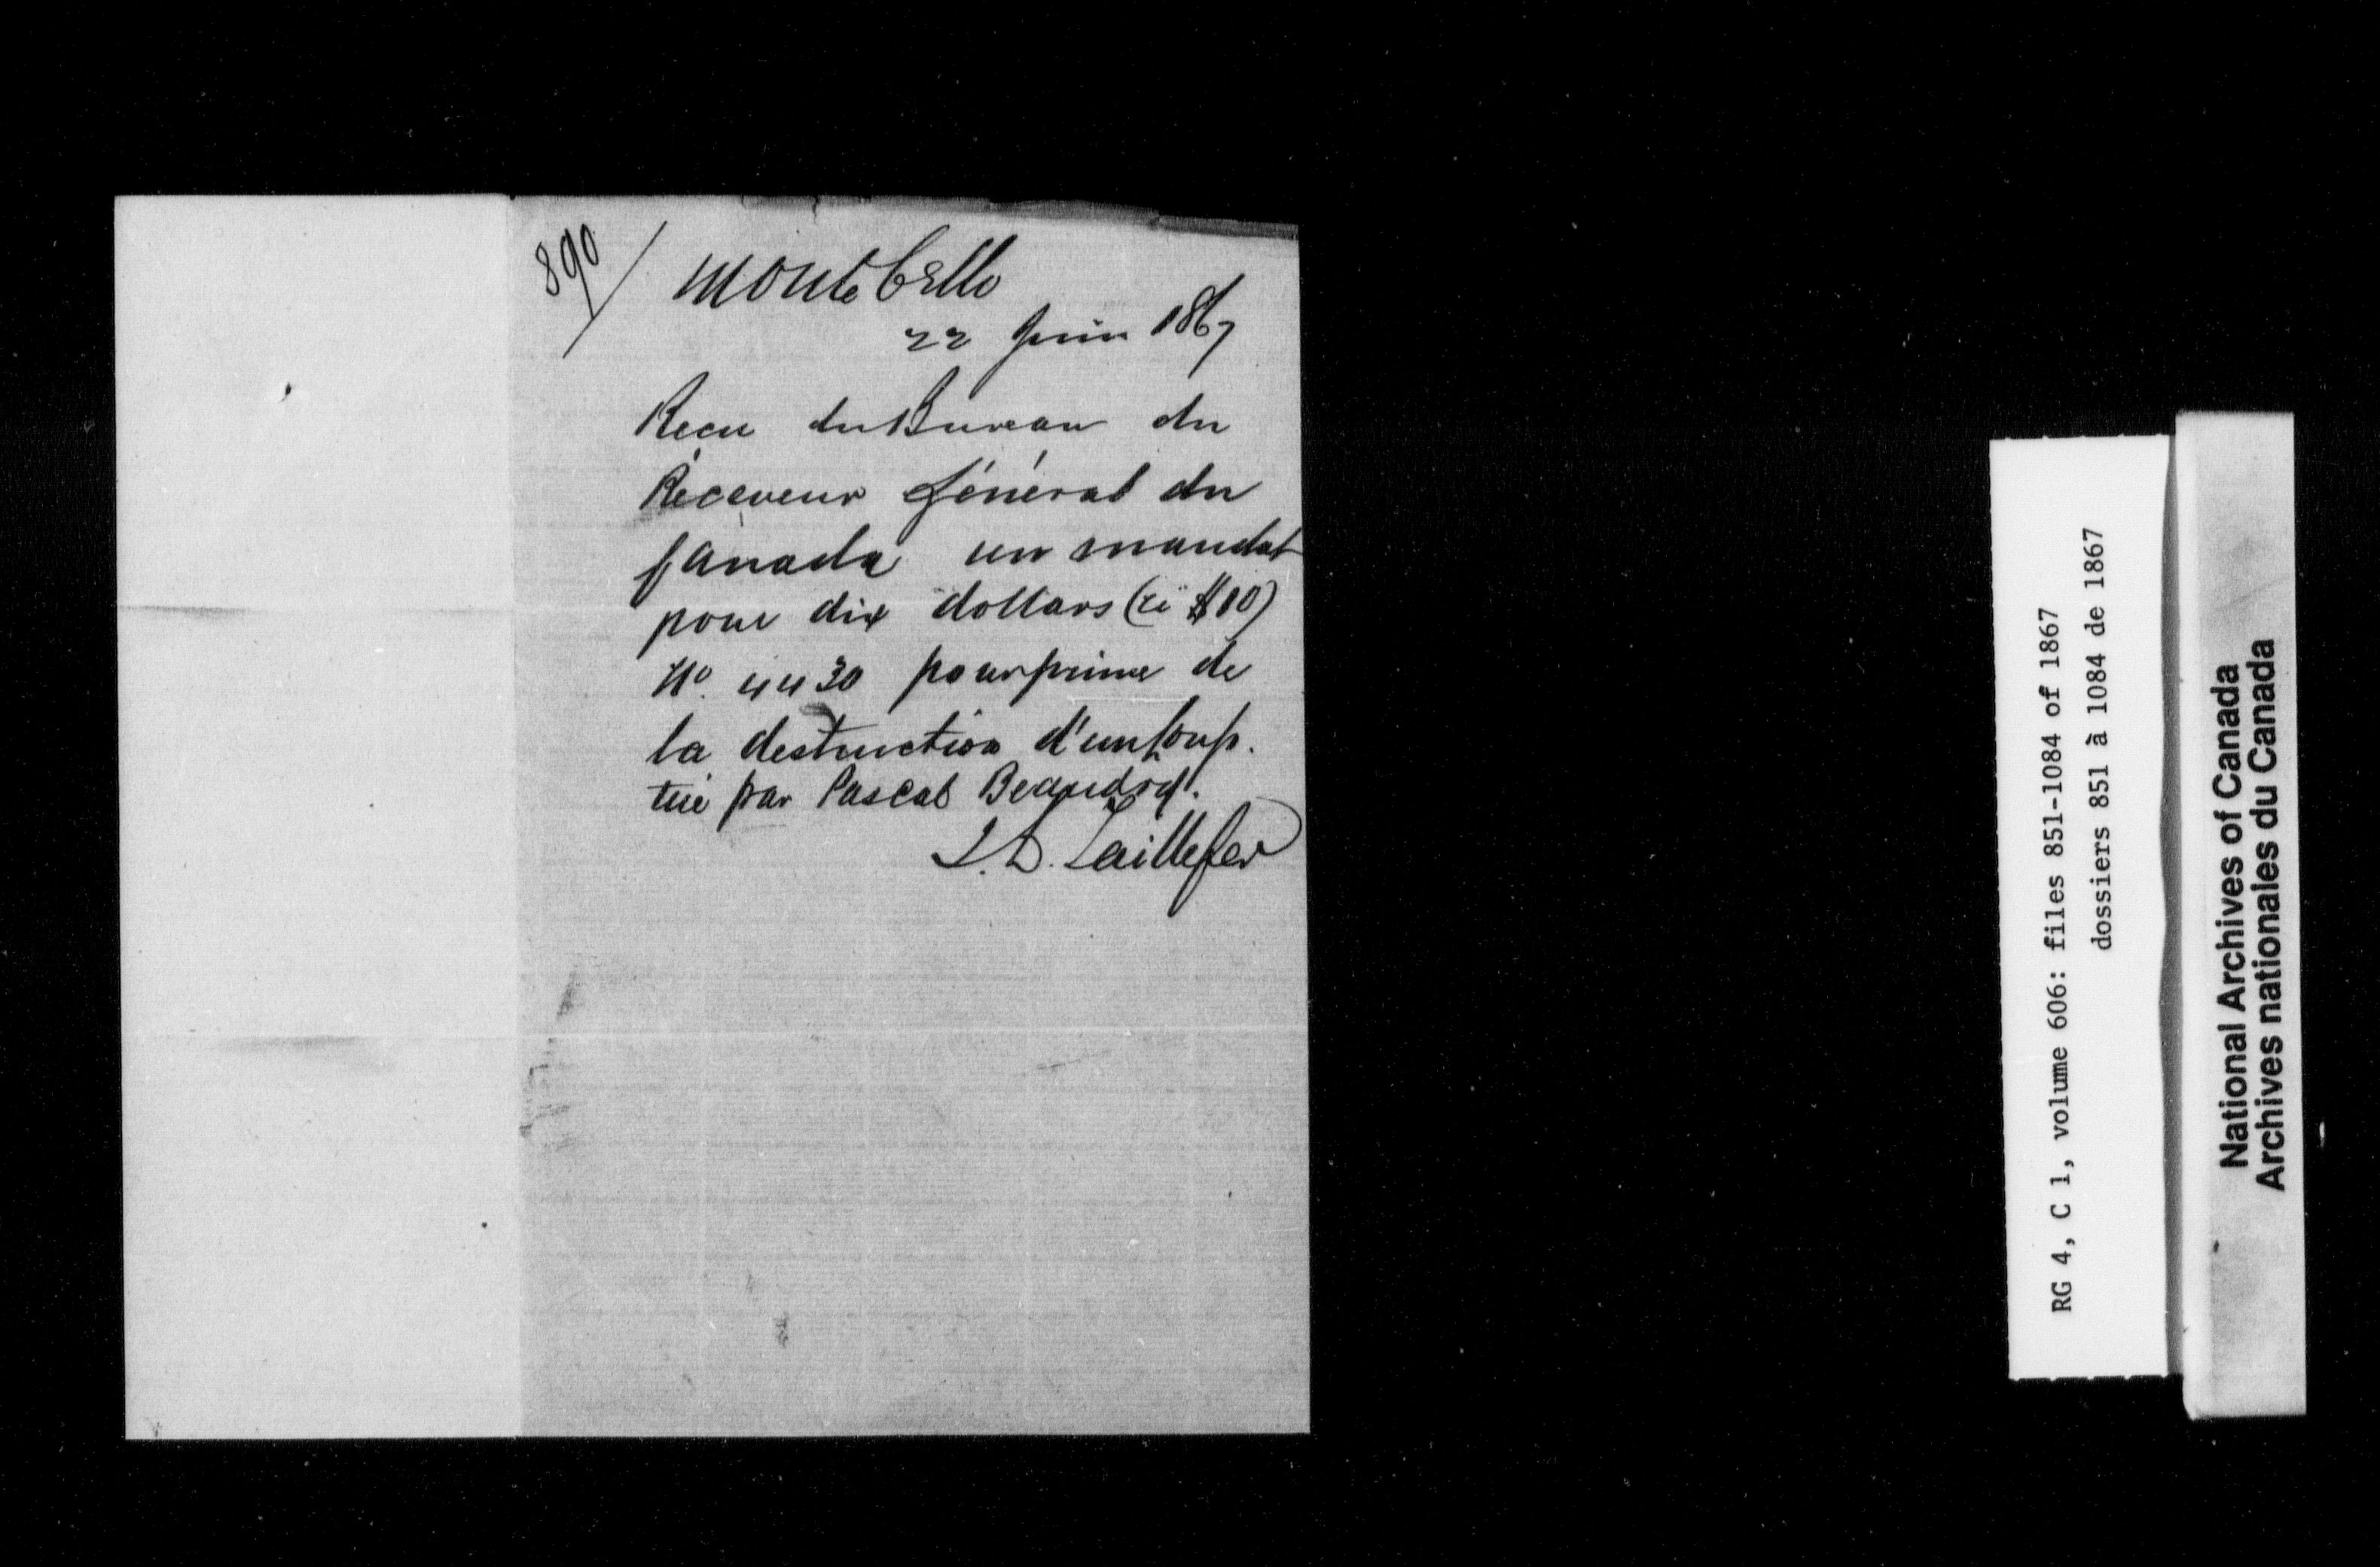 890
Montebello
22 Juin 1867
Recu du Bureau du
Réceveur Général du
Canada un mandat
pour dix dollars (ci $10)
No. 4430 pour prime de
la destruction d'un loup.
tué par Pascal
Taillefer
RG 4, C 1, volume 606: files 851-1084 of 1867
dossiers 851 à 1084 de 1867
National Archives of Canada
Archives nationales du Canada